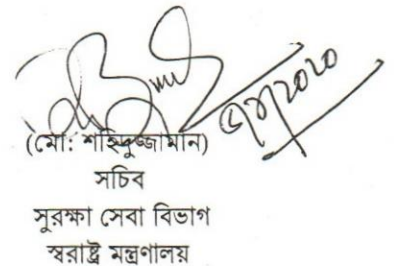 (মো: শহিদুজ্জামান)
সচিব
সুরক্ষা সেবা বিভাগ
স্বরাষ্ট্র মন্ত্রণালয়